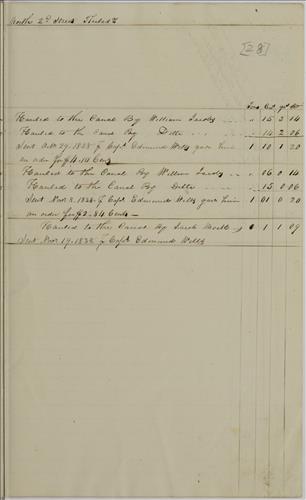 North 2d Street Philad.a
[28]
Tons Cwt qr lbs
Hauled to the Canal By William Jacobs " 15 3 14
Hauled to the Canal By Ditto " 14 2 06
Sent Oct. 29, 1838 pr Capt Edmund Wells gave him 1 10 1 20
an order for $4.14 Cents
Hauled to the Canal By William Jacobs " 06 0 14
Hauled to the Canal By Ditto " 15 0 06
Sent Nov. 8. 1838 pr Capt Edmund Wells gave him 1 01 0 20
an order for $2.84 Cents
Hauled to the Canal By Jacob 1 1 09
Sent Nov. 19. 1838 pr Capt Edmund Wells